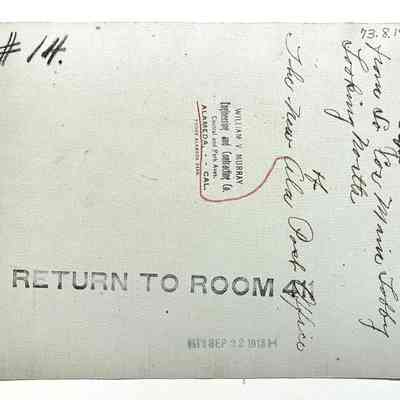 # 14.
73.8.1
from So. Cor. Main Lobby
Looking North
of
The New Ala Post Office
WILLIAM V MURRAY
Engineering and Contracting Co.
Central and Park Aves.
ALAMEDA, - - CAL.
RETURN TO ROOM 41
SEP 22 1913